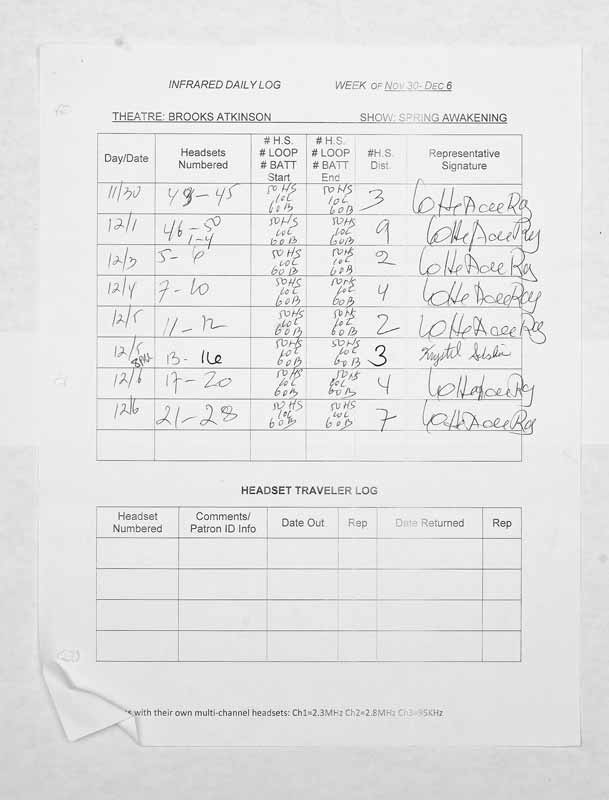 INFRARED DAILY LOG WEEK OF NOV 30- DEC 6
THEATRE: BROOKS ATKINSON SHOW: SPRING AWAKENING
Day/Date Headsets Numbered # H.S. # LOOP # BATT Start # H.S. # LOOP # BATT End #H.S. Dist. Representative Signature
11/30 43-45 50HS 10L 60B 50HS 10L 60B 3
12/1 46-50 1-4 50HS 10L 60B 50HS 10L 60B 9
12/3 5-6 50HS 10L 60B 50HS 10L 60B 2
12/4 7-10 50HS 10L 60B 50HS 10L 60B 4
12/5 11-12 50HS 10L 60B 50HS 10L 60B 2
12/5 8PM 13-16 50HS 10L 60B 50HS 10L 60B 3 Krystal
12/6 17-20 50HS 10L 60B 50HS 10L 60B 4
12/6 21-28 50HS 10L 60B 50HS 10L 60B 7
HEADSET TRAVELER LOG
Headset Numbered Comments/ Patron ID Info Date Out Rep Date Returned Rep
with their own multi-channel headsets: Ch1=2.3MHz Ch2=2.8MHz Ch3=95KHz